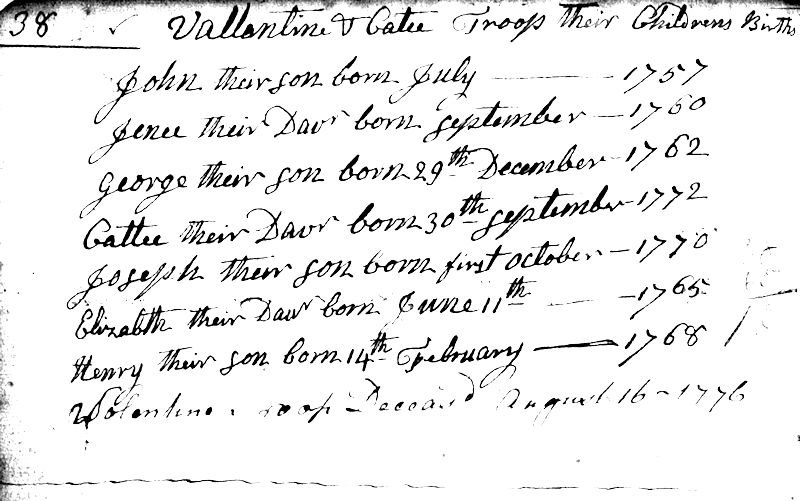 38 Vallantine & Catee Troop their Childrens Births
John their son born July — 1757
Jenee their Daur born September — 1760
George their son born 29th December — 1762
Cattee their Daur born 30th September — 1772
Joseph their son born first october — 1770
Elizabth their Daur born June 11th — 1765
Henry their son born 14th February — 1768
Volentine roop Deceasd August 16 - 1776